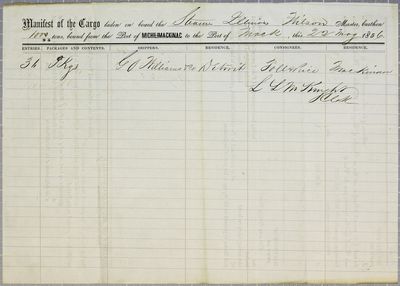 Manifest of the Cargo laden on board the Steamer Illinois Wilson Master, burthen
tons, bound from the Port of MICHILIMACKINAC to the Port of Mack this 22 May 1856
ENTRIES. PACKAGES AND CONTENTS. SHIPPERS. RESIDENCE. CONSIGNEES. RESIDENCE.
34 Pkgs G O Williams & Co Detroit Toll & Rice Mackinaw
L L McKnight
Clk